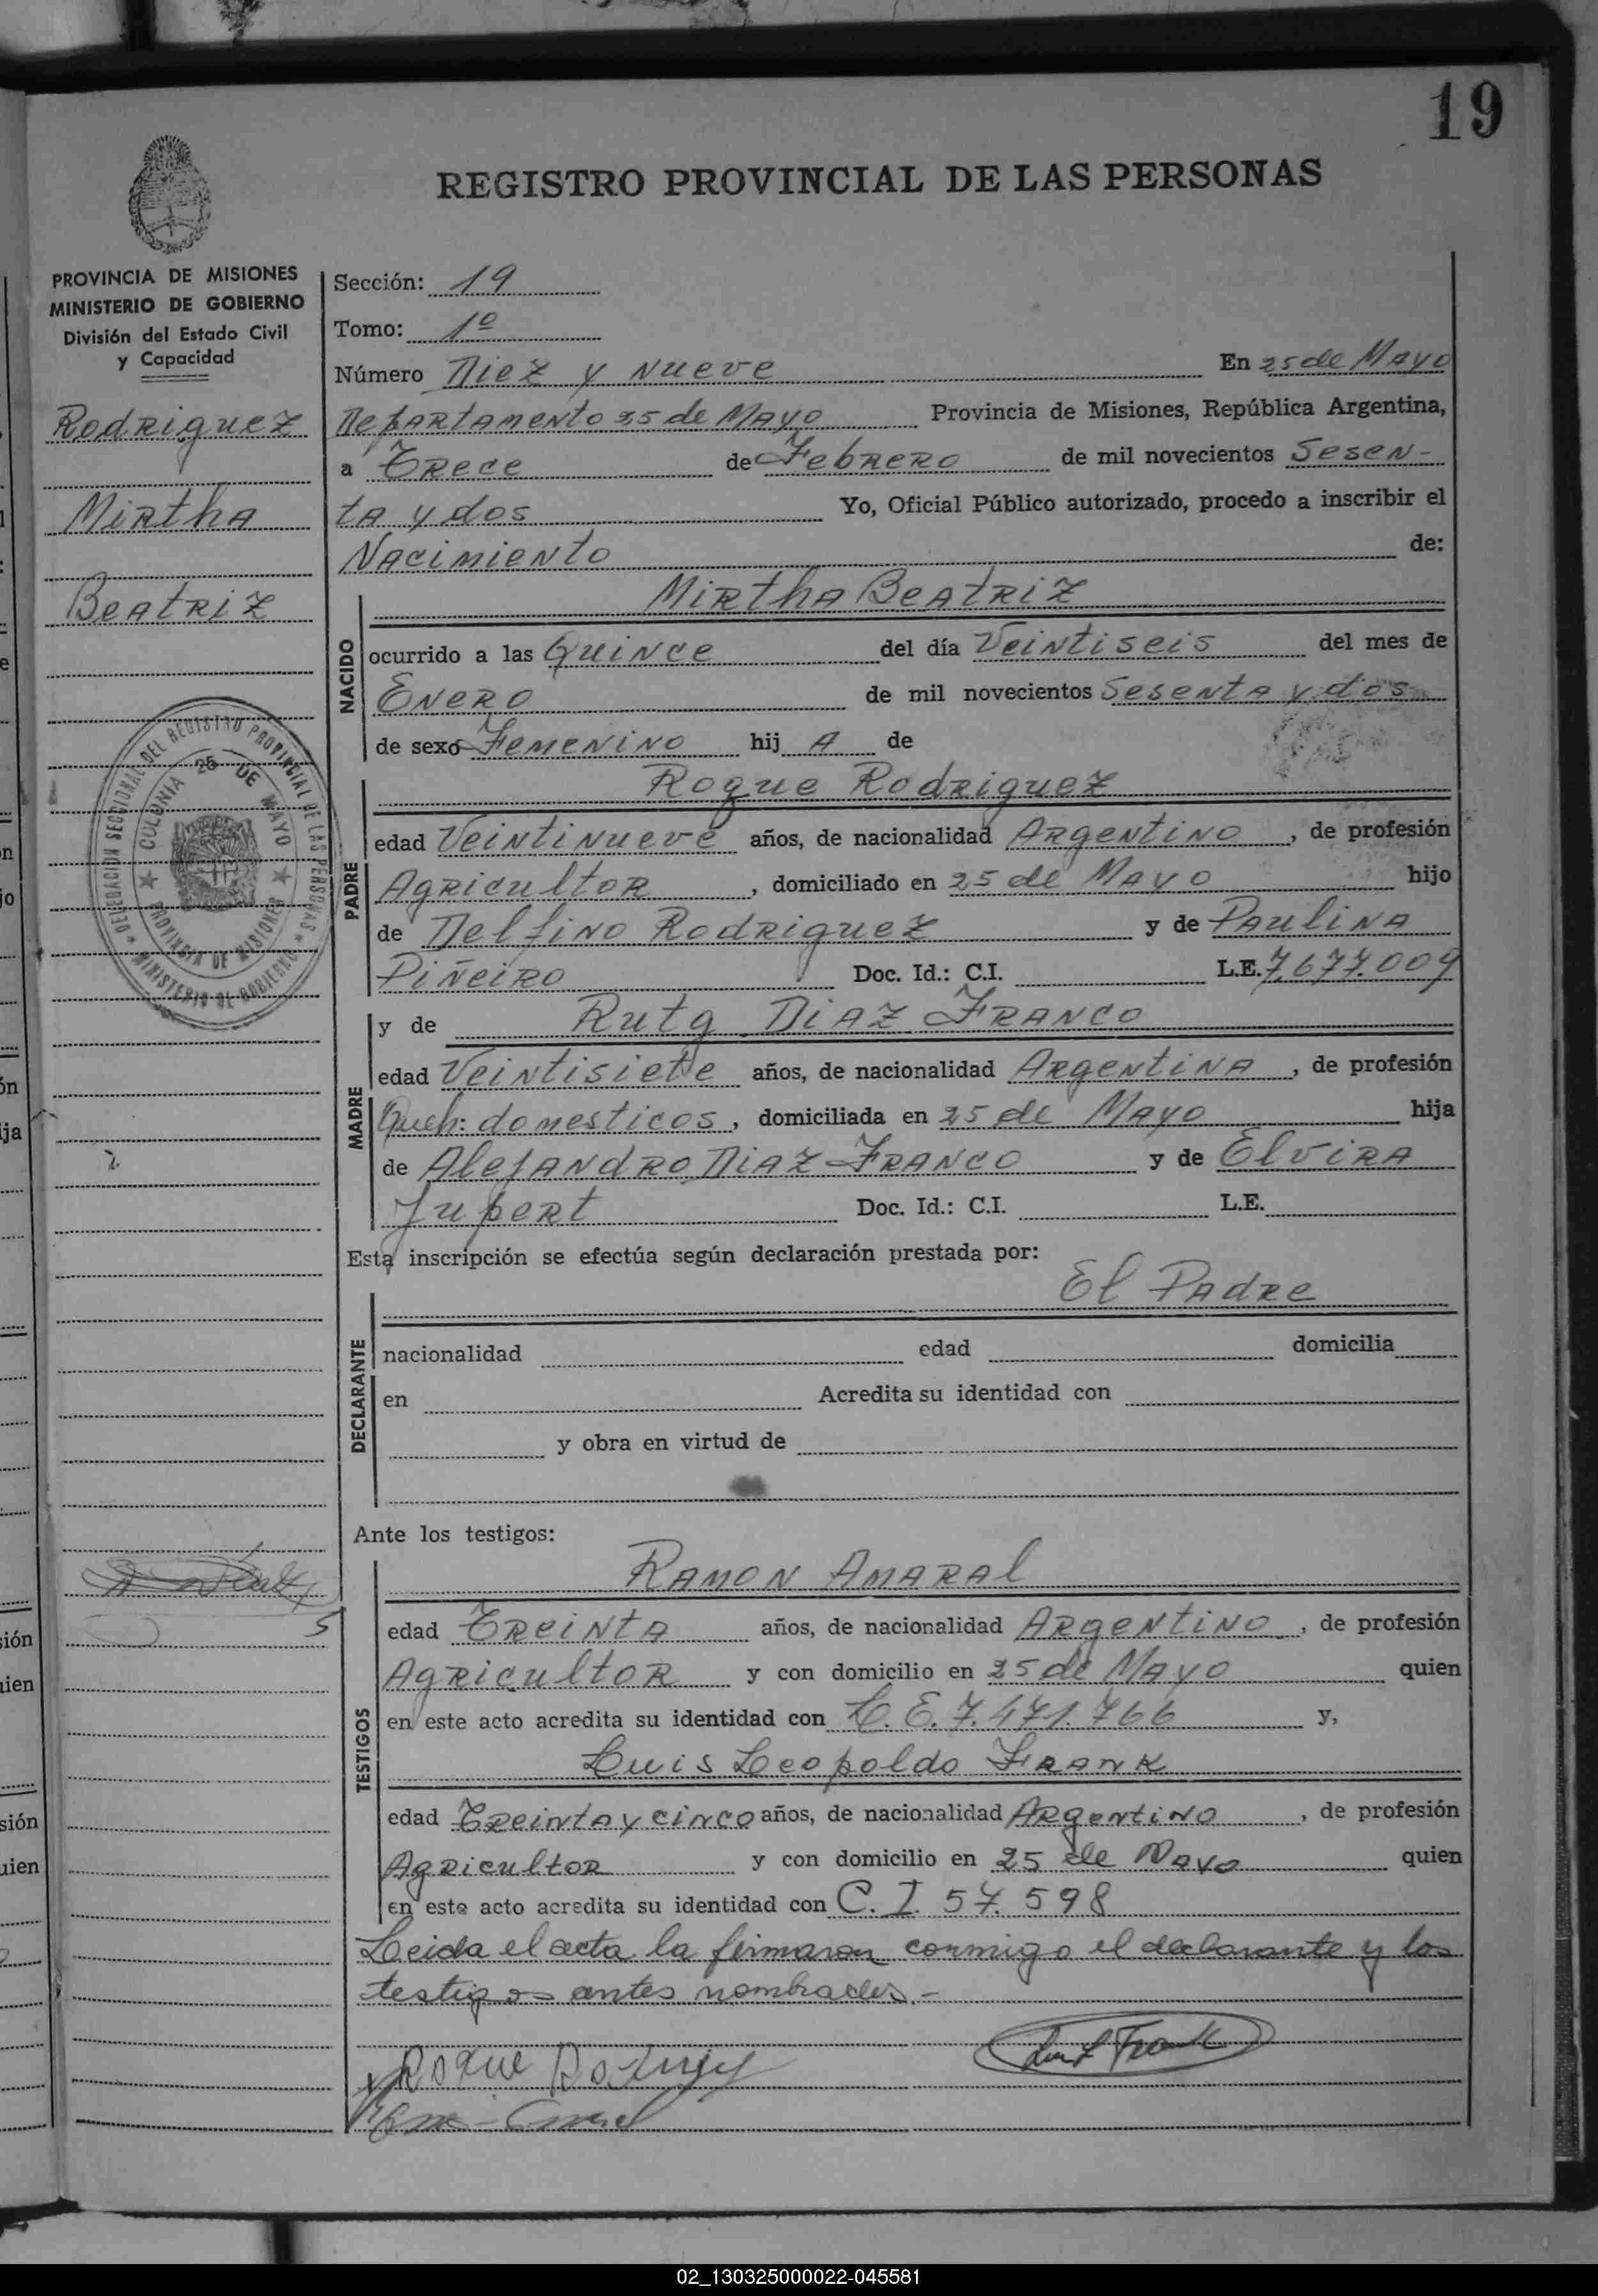 19
REGISTRO PROVINCIAL DE LAS PERSONAS
PROVINCIA DE MISIONES
MINISTERIO DE GOBIERNO
División del Estado Civil
y Capacidad
Rodriguez
Mirtha
Beatriz
DELEGACION SECCIONAL DEL REGISTRO PROVINCIAL DE LAS PERSONAS
MINISTERIO DE GOBIERNO
COLONIA 25 DE MAYO
PROVINCIA DE MISIONES
Sección: 19
Tomo: 1º
Número Diez y nueve En 25 de Mayo
Departamento 25 de Mayo Provincia de Misiones, República Argentina,
a Trece de Febrero de mil novecientos Sesen-
ta y dos Yo, Oficial Público autorizado, procedo a inscribir el
Nacimiento de:
Mirtha Beatriz
NACIDO
ocurrido a las Quince del día Veintiseis del mes de
Enero de mil novecientos Sesenta y dos
de sexo Femenino hij A de
Roque Rodriguez
PADRE
edad Veintinueve años, de nacionalidad Argentino, de profesión
Agricultor, domiciliado en 25 de Mayo hijo
de Delfino Rodriguez y de Paulina
Piñeiro Doc. Id.: C.I. L.E. 7.677.009
y de Rutg Diaz Franco
MADRE
edad Veintisiete años, de nacionalidad Argentina, de profesión
Queh: domesticos, domiciliada en 25 de Mayo hija
de Alejandro Diaz Franco y de Elvira
Jupert Doc. Id.: C.I. L.E.
Esta inscripción se efectúa según declaración prestada por:
El Padre
DECLARANTE
nacionalidad edad domicilia
en Acredita su identidad con
y obra en virtud de
Ante los testigos:
Ramon Amaral
TESTIGOS
edad Treinta años, de nacionalidad Argentino, de profesión
Agricultor y con domicilio en 25 de Mayo quien
en este acto acredita su identidad con L.E. 7.471.766 y,
Luis Leopoldo Frank
edad Treinta y cinco años, de nacionalidad Argentino, de profesión
Agricultor y con domicilio en 25 de Mayo quien
en este acto acredita su identidad con C.I. 57.598
Leida el acta la firmaron conmigo el declarante y los
testigos antes nombrados.-
Luis L Frank
Roque
02_130325000022-045581